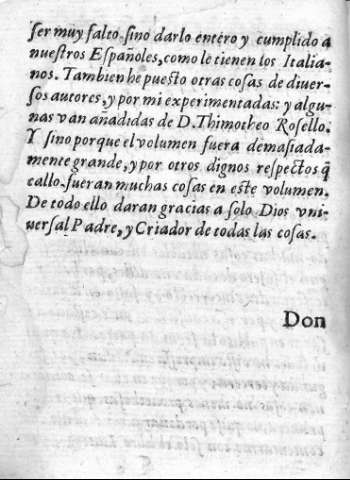 ſer muy falto. ſino darlo entero y cumplido a
nueſtros Eſpañoles, como le tienen los Italia-
nos. Tambien he pueſto otras coſas de diuer-
ſos autores, y por mi experimentadas: y algu-
nas van añadidas de D. Thimotheo Roſello.
Y ſino porque el volumen fuera demaſiada-
mente grande, y por otros dignos reſpectos q̃
callo. fueran muchas coſas en eſte volumen.
De todo ello daran gracias a ſolo Dios vni-
uerſal Padre, y Criador de todas las coſas.
Don